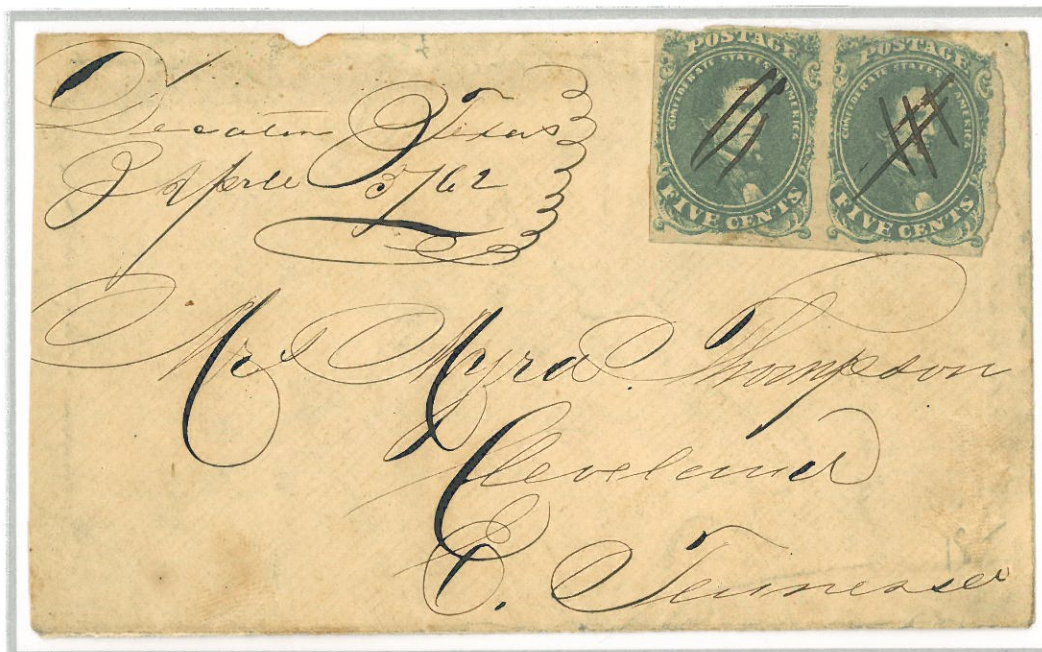 Decatur Texas
Aprle 5/62
POSTAGE
CONFEDERATE STATES AMERICA
FIVE CENTS
POSTAGE
CONFEDERATE STATES AMERICA
FIVE CENTS
Mrs Myra Thompson
Cleveland
E. Tennessee